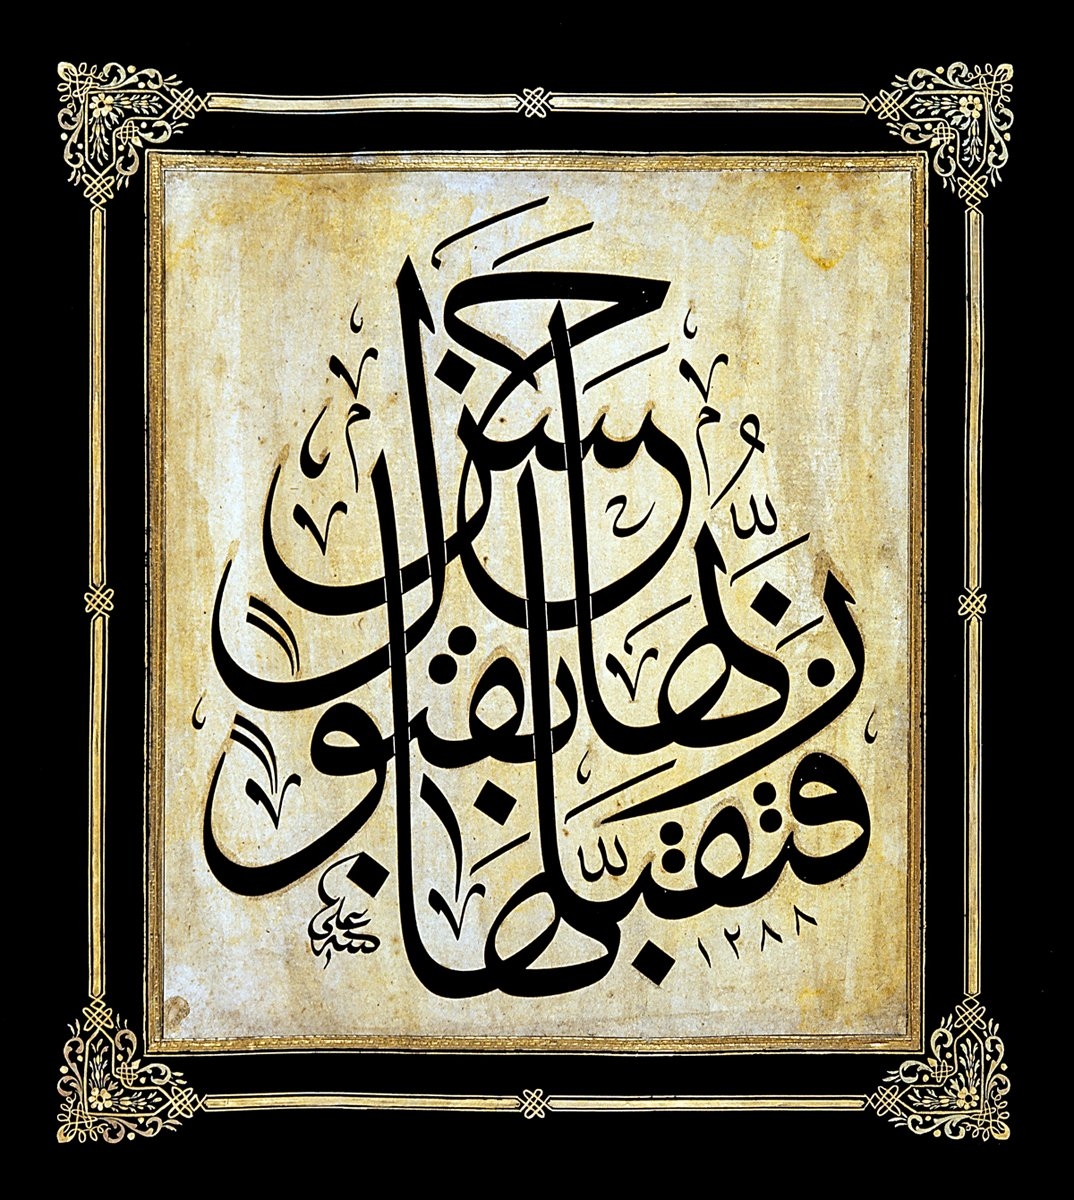 فَتَقَبَّلَهَا
رَبُّهَا
بِقَبُولٍ
حَسَنٍ
كتبه علي
١٢٨٨